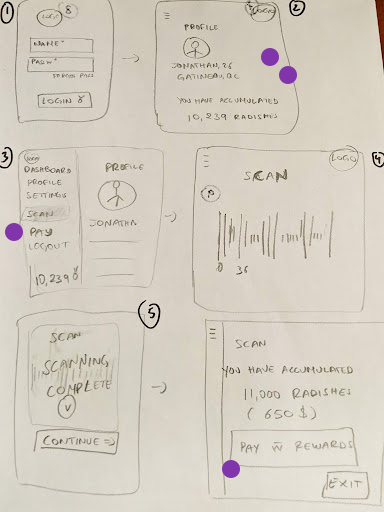 1
LOGO
8
NAME*
PASW*
LOGIN
2
LOGO
PROFILE
JONATHAN, 26
GATINEAU, BC
YOU HAVE ACCUMULATED
10,239 RADISHES
3
LOGO
DASHBOARD
PROFILE
SETTINGS
SCAN
PAY
LOGOUT
10,239
PROFILE
JONATHAN
4
LOGO
SCAN
0 36
5
SCAN
SCANNING
COMPLETE
CONTINUE =>
SCAN
YOU HAVE ACCUMULATED
11,000 RADISHES
(650$)
PAY W REWARDS
EXIT